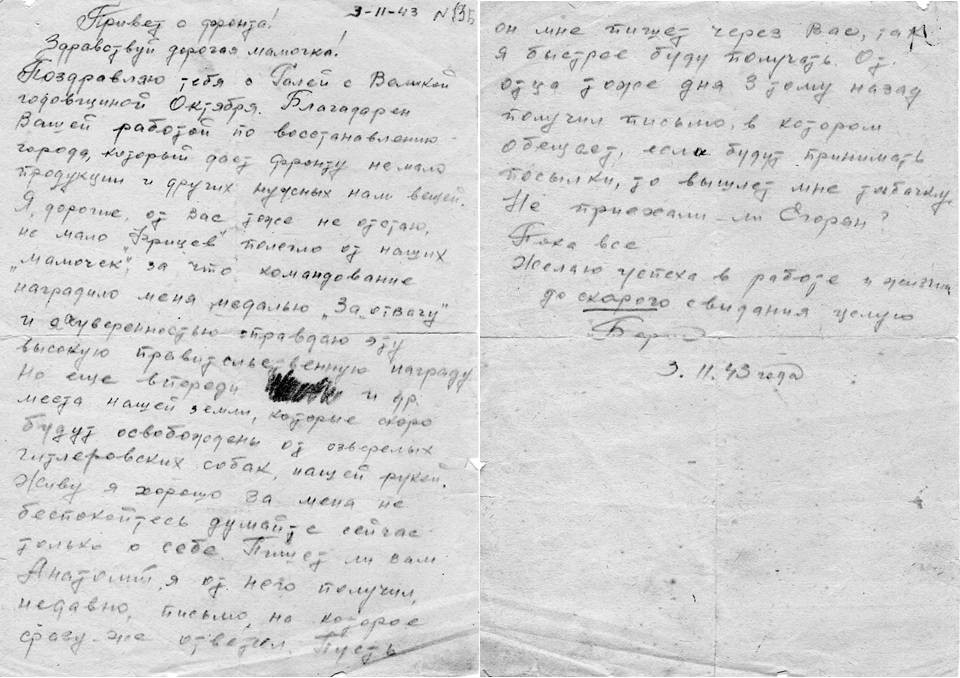 3-11-43 N
Привет с фронта!
Здравствуй дорогая мамочка!
Поздравляю тебя с Галей с Великой
годовщиной Октября. Благадарен
Вашей работой по восстанавлению
города, который даст фронту не мало
продукции и других нужных нам вещей.
Я, дорогие, от Вас тоже не отстаю,
не мало "Фрицев" полегло от наших
"мамочек", за что командование
наградило меня медалью "За отвагу"
и с уверенностью оправдаю эту
высокую правительственную награду
Но еще впереди и др.
места нашей земли, которые скоро
будут освобождены от озверелых
гитлеровских собак, нашей рукой.
Живу я хорошо за меня не
беспокойтесь думайте сейчас
только о себе. Пишет ли вам
Анатолий, я от него получил,
недавно, письмо, на которое
сразу-же ответил. Пусть
он мне пишет через Вас, так
я быстрее буду получать. От
отца тоже дня 3 тому назад
получил письмо, в котором
обещает, если будут принимать
посылки, то вышлет мне табачку.
Не приехали-ли Егоран?
Пока все
Желаю успеха в работе и жизни
до скорого свидания целую
Борис
3.11.43 года